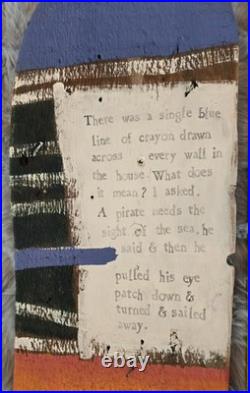 There was a single blue
line of crayon drawn
across every wall in
the house. What does
it mean? I asked.
A pirate needs the
sight of the sea, he
said & then he
pulled his eye
patch down &
turned & sailed
away.